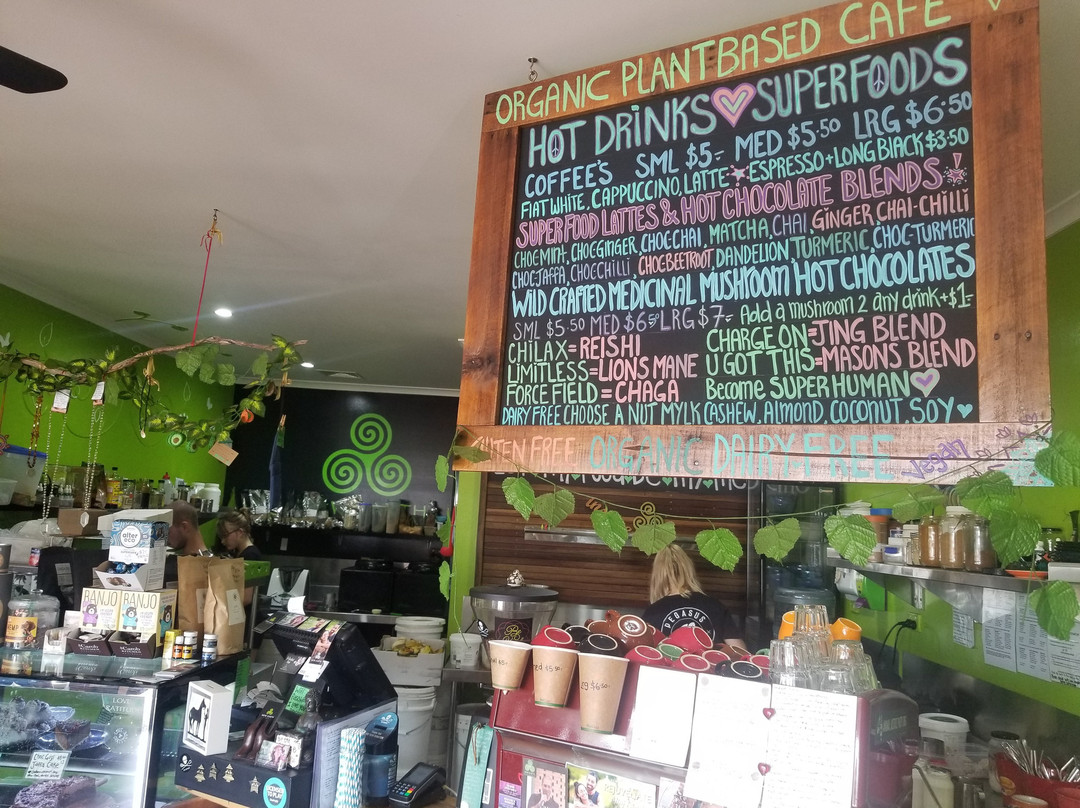 ORGANIC PLANTBASED CAFE
HOT DRINKS SUPERFOODS
COFFEE'S SML $5- MED $5.50 LRG $6.50
FLAT WHITE, CAPPUCCINO, LATTE ESPRESSO+LONG BLACK $3.50
SUPERFOOD LATTES & HOT CHOCOLATE BLENDS!
CHOC-MINT, CHOC-GINGER, CHOC-CHAI, MATCHA, CHAI, GINGER CHAI-CHILLI
CHOC-JAFFA, CHOC-CHILLI, CHOC-BEETROOT, DANDELION, TURMERIC, CHOC-TURMERIC
WILD CRAFTED MEDICINAL MUSHROOM HOT CHOCOLATES
SML $5.50 MED $6.50 LRG $7- Add a mushroom 2 any drink+$1-
CHILAX=REISHI CHARGE ON=JING BLEND
LIMITLESS=LIONS MANE U GOT THIS=MASONS BLEND
FORCE FIELD=CHAGA Become SUPERHUMAN
DAIRY FREE CHOOSE A NUT MYLK CASHEW, ALMOND, COCONUT, SOY
GLUTEN FREE ORGANIC DAIRY-FREE vegan
PEGASUS
alter eco
BANJO BANJO
med $5.50
LRG $6.50